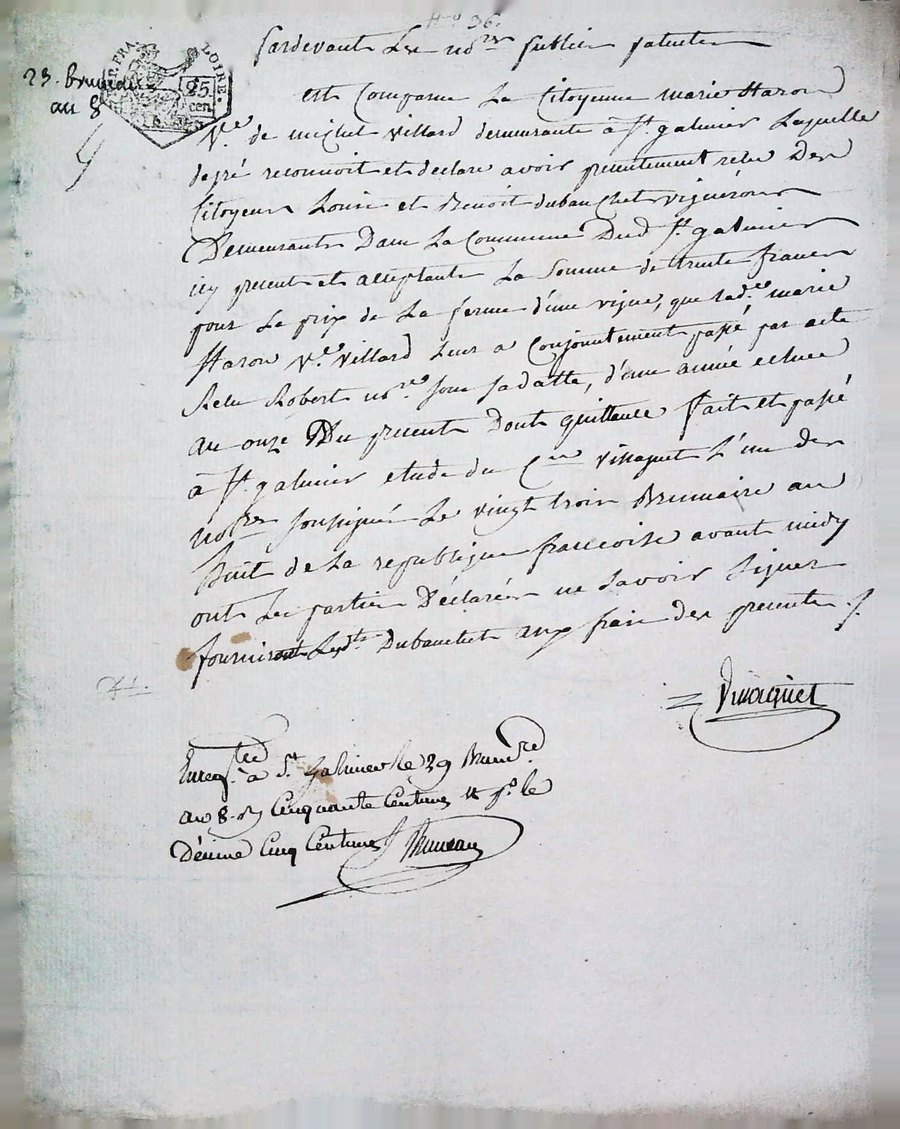 N.o 36.
Pardevant Les no.res publics patentes
23. brumaire
an 8
REP. FRA.
LOIRE.
25
cen.
est Comparue La Citoyenne marie Haron
V.e de michel villard demeurante à St. galmier Laquelle
degré reconnoit et declare avoir presentement relu Des
Citoyens Louis et Benoit dubanchet vignerons
Demeurants Dans La Commune Dud. St. galmier
icy presents et acceptants La Somme de trente francs
pour Le prix de La ferme d'une vigne, que lad.e marie
Haron V.e villard Leur a Conjointement passé par acte
Relu Robert no.re sous sa datte, d'une année echue
au onze Du present Dont quittance fait et passé
à St. galmier etude du C.en Vinaguet L'un des
no.res soussignés Le vingt trois Brumaire an
huit de La republique francoise avant midy
ont Les parties Déclarées ne savoir signer
fourniront Lesdts. Dubanchet aux frais des presentes ./.
Vinaguet
Enreg.tré à St. Galmier le 29 Brum.re
an 8. R. Cinquante Centimes # p.r le
Décime Cinq Centimes